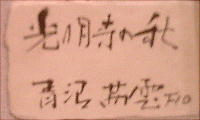 光明寺の秋
青沼 茜雲 F10